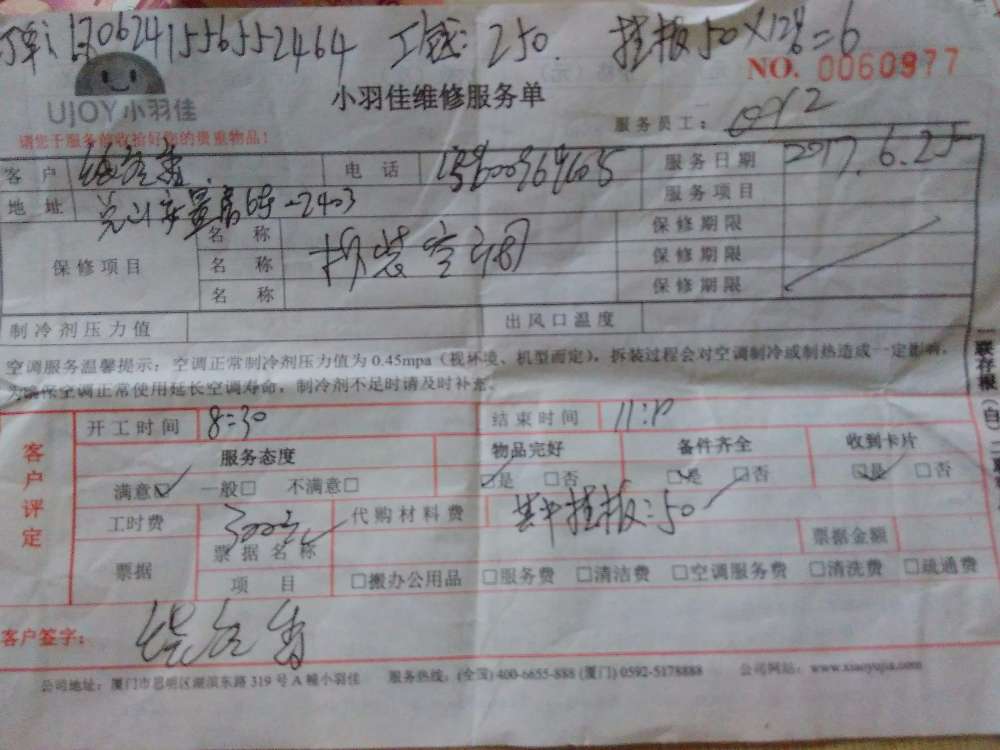 1706241556552464 工钱:250. 挂板50×12%=6
NO. 0060977
UJOY小羽佳
小羽佳维修服务单
请您于服务前收拾好您的贵重物品!
服务员工:
客户 电话 服务日期 2017.6.25
地址 6号-2403 服务项目
保修项目 名称 拆装空调 保修期限
名称 保修期限
名称 保修期限
制冷剂压力值 出风口温度
空调服务温馨提示:空调正常制冷剂压力值为0.45mpa(视环境、机型而定),拆装过程会对空调制冷或制热造成一定影响,
为确保空调正常使用延长空调寿命,制冷剂不足时请及时补充。
客户评定
开工时间 8:30 结束时间
服务态度 物品完好 备件齐全 收到卡片
满意☑ 一般□ 不满意□ ☑是 □否 ☑是 □否 ☑是 □否
工时费 300元 代购材料费 其中挂板:50
票据 票据名称 票据金额
项目 □搬办公用品 □服务费 □清洁费 □空调服务费 □清洗费 □疏通费
客户签字:
公司地址:厦门市思明区湖滨东路319号A幢小羽佳 服务热线:(全国)400-6655-888 (厦门)0592-5178888 公司网站:www.xiaoyujia.com